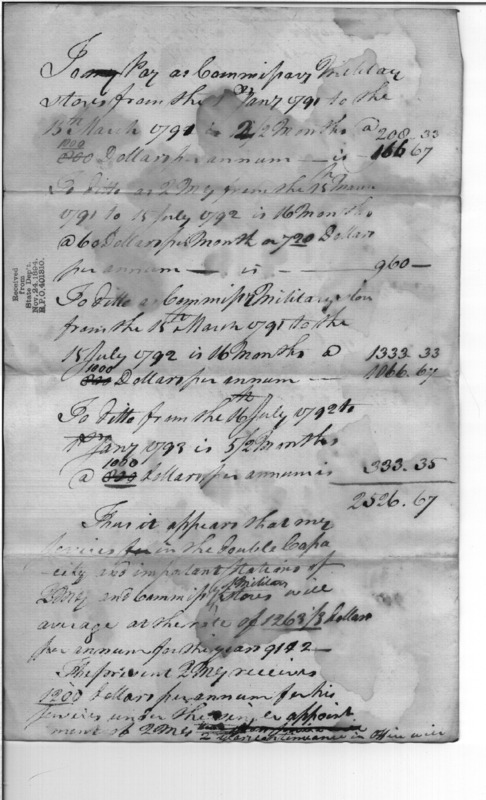 To my Pay as Commissary Military
Stores from the 1st Jany 1791 to the
15th March 1791 is 2 1/2 Months @ 208.33
1000
800 Dollars per annum — is — 166.67
To ditto as 2 Mr from the 15 March
1791 to 15 July 1792 is 16 Months
@ 60 Dollars per Month or 720 Dollars
per annum — is — 960 —
To ditto as Commissy Military
from the 15th March 1791 to the
15 July 1792 is 16 Months @ 1333.33
1000
800 Dollars per annum — 1066.67
To ditto from the 16th July 1792 to
1st Jany 1793 is 5 1/2 Months
1000
@ 800 dollars per annum is 333.35
2526.67
Thus it appears that my
services in the double Capa
-city and important Stations of
2 Mr and Commissy Military Stores will
average at the rate of 1263 1/3 Dollars
per annum for the years 91 & 2 —
The present 2 Mr receives
1200 Dollars per annum for his
services under the single appoint
ment of 2 Mr
2 years continuance in Office will
Received
from
State Dep't.
Nov. 24, 1894.
R.P.O. 401810.